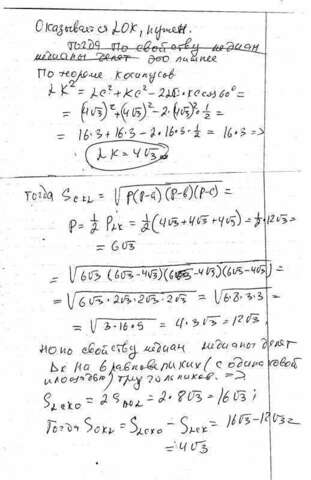 Оказывается LOK, нужен.
Тогда по свойству медиан
медианы делят это лишнее
По теореме косинусов
LK² = LC² + KC² - 2LC·KC cos60° =
= (4√3)² + (4√3)² - 2·(4√3)²·1/2 =
= 16·3 + 16·3 - 2·16·3·1/2 = 16·3 =>
LK = 4√3.
Тогда S_CKL = √p(p-a)(p-b)(p-c) =
p = 1/2 P_LK = 1/2 (4√3+4√3+4√3) = 1/2·12√3 =
= 6√3
= √6√3 (6√3-4√3)(6√3-4√3)(6√3-4√3) =
= √6√3·2√3·2√3·2√3 = √6·8·3·3 =
= √3·16·9 = 4·3√3 = 12√3,
но по свойству медиан медианы делят
Δк на 6 равновеликих (с одинаковой
площадью) треугольников. =>
S_LCKO = 2S = 2·8√3 = 16√3;
Тогда S_OKL = S_LCKO - S_LCK = 16√3-12√3=
= 4√3